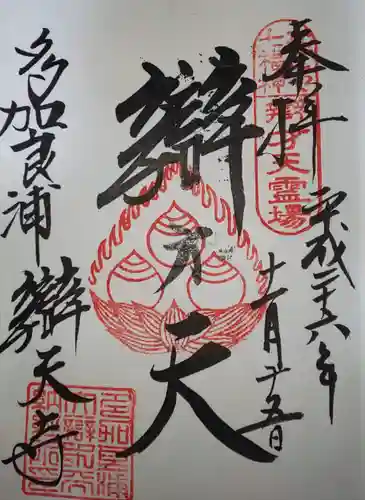 奉拝
平成二十六年
十一月十五日
辨才天
多加良浦
辨天寺
七福神
辨才天霊場